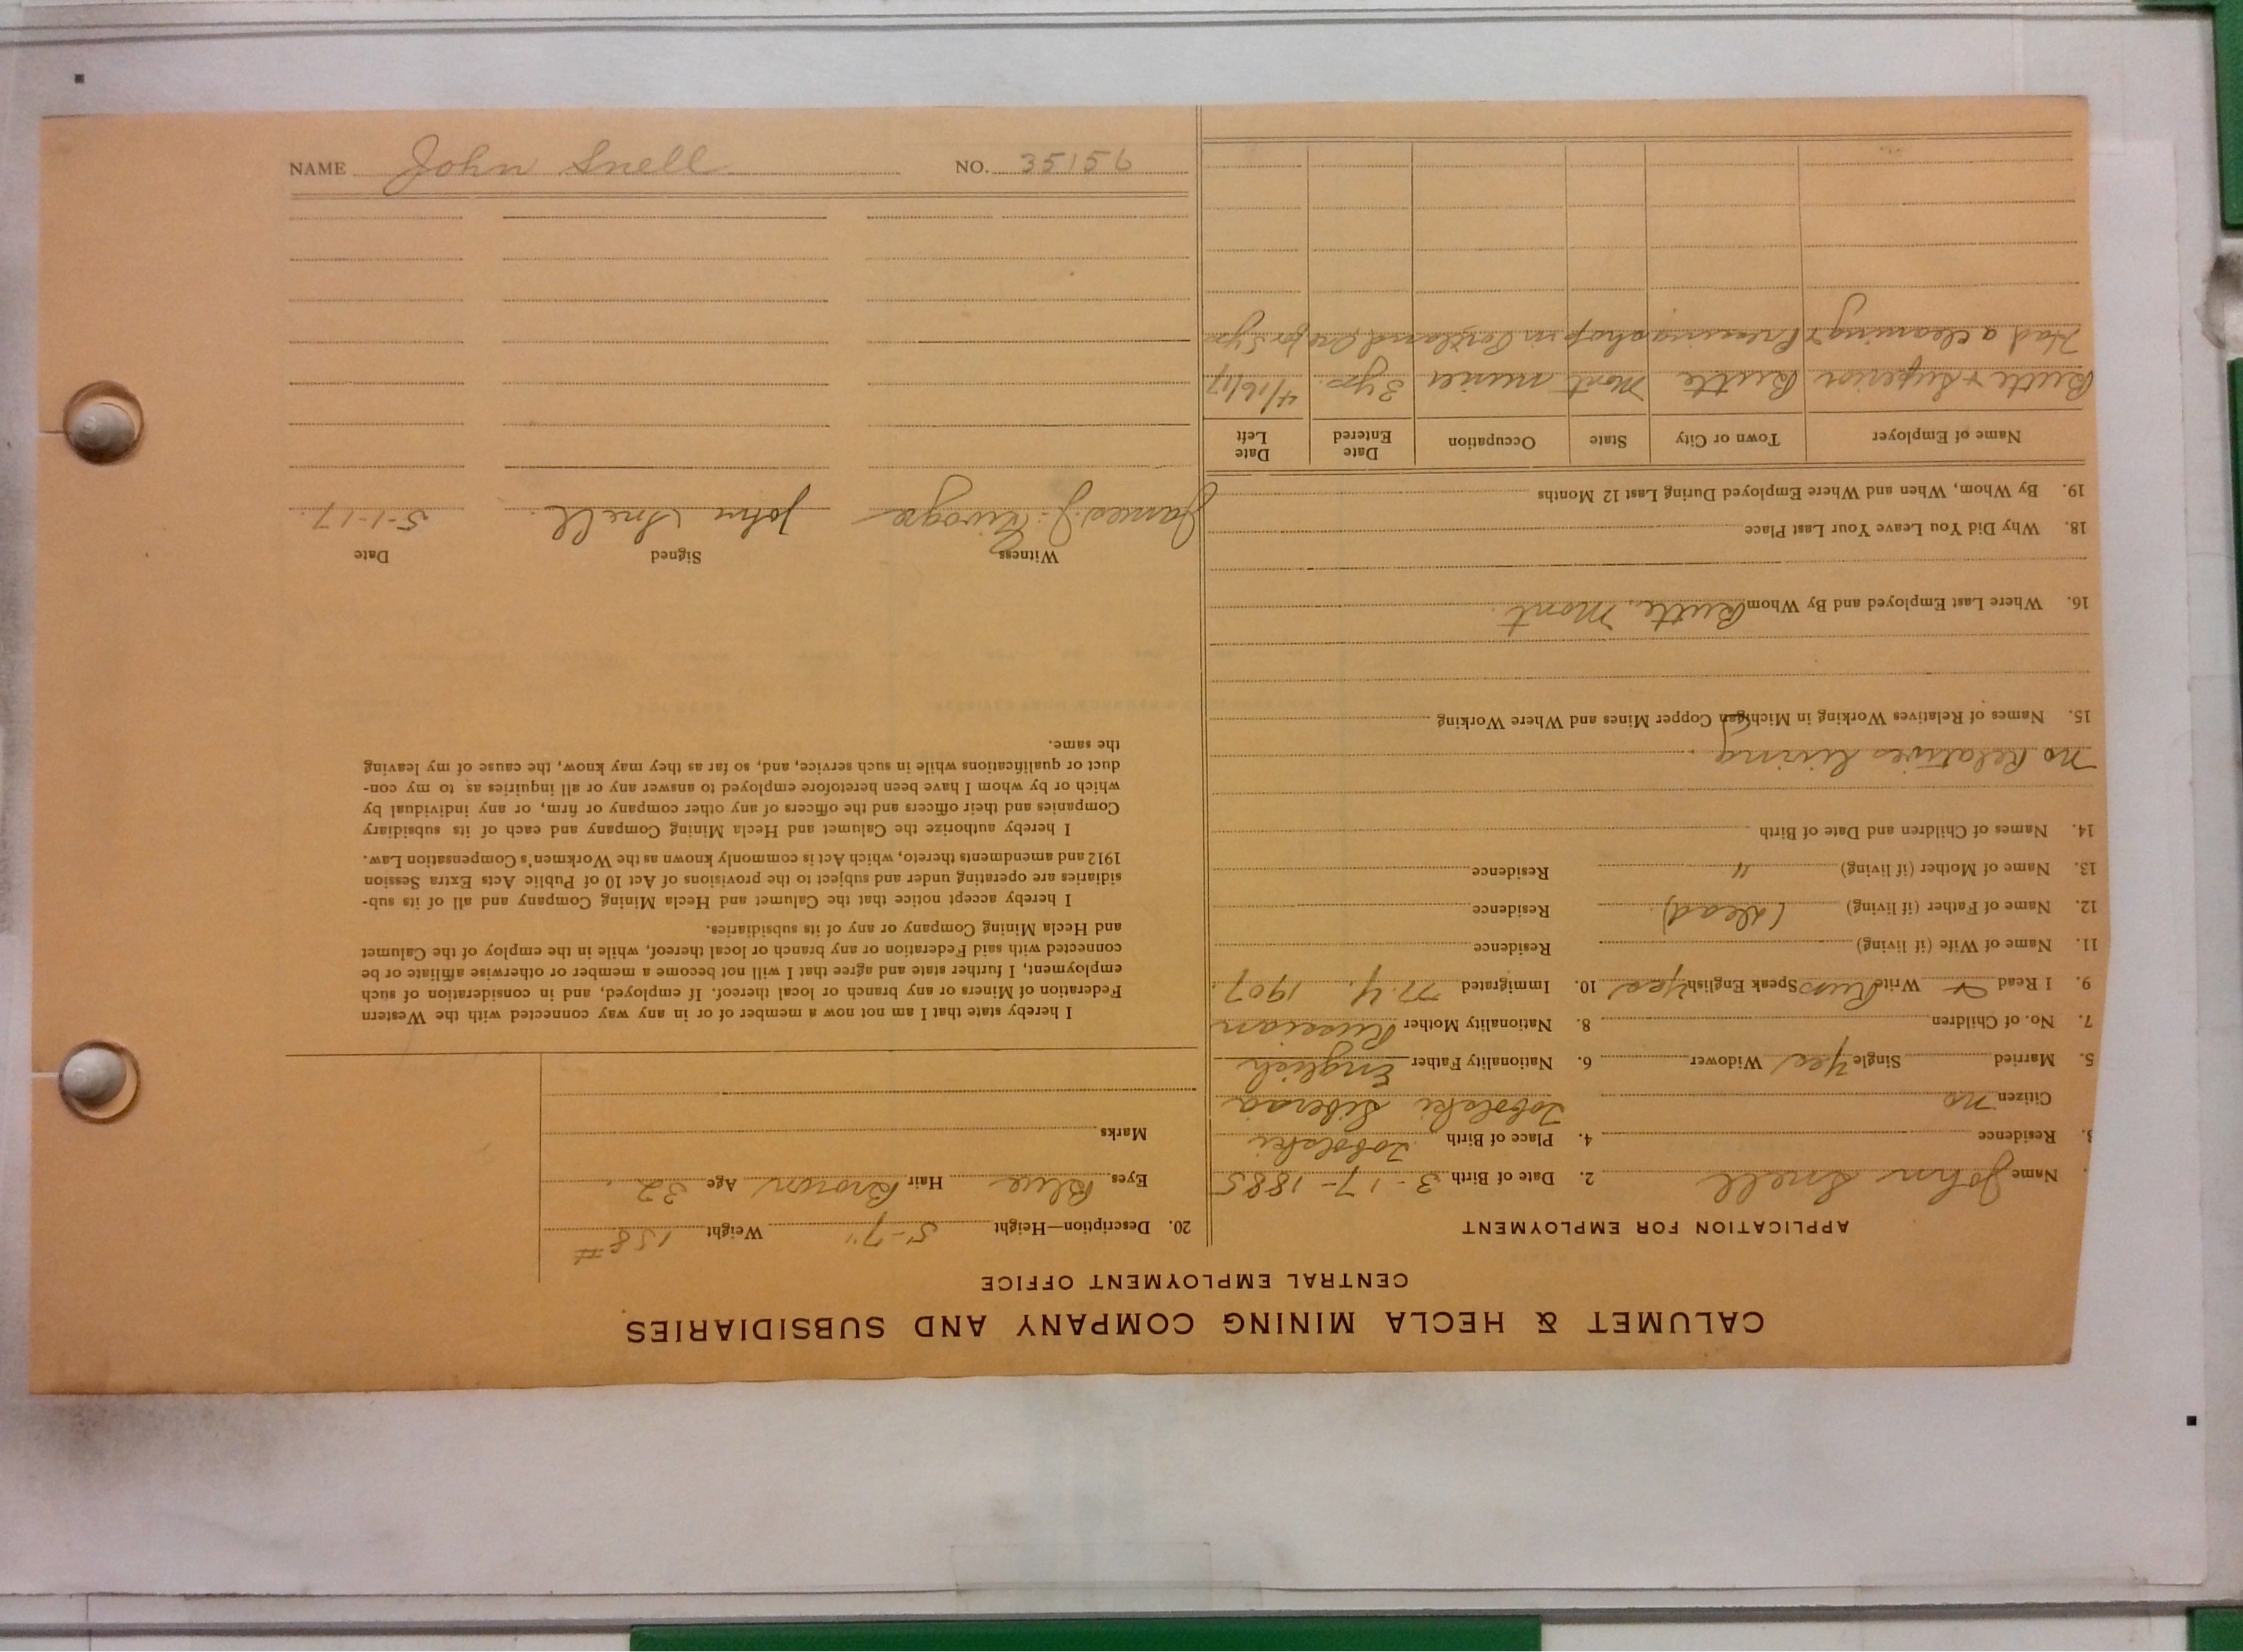 CALUMET & HECLA MINING COMPANY AND SUBSIDIARIES
CENTRAL EMPLOYMENT OFFICE
APPLICATION FOR EMPLOYMENT
Name John Snell 2. Date of Birth 3-17-1885
3. Residence 4. Place of Birth Tobolski
Citizen no Tobolski Siberia
5. Married Single Yes Widower 6. Nationality Father English
7. No. of Children 8. Nationality Mother Russian
9. I Read + Write Russ Speak English yes 10. Immigrated N.Y. 1907
11. Name of Wife (if living) Residence
12. Name of Father (if living) (dead) Residence
13. Name of Mother (if living) " Residence
14. Names of Children and Date of Birth
no Relatives living
15. Names of Relatives Working in Michigan Copper Mines and Where Working
16. Where Last Employed and By Whom Butte, Mont.
18. Why Did You Leave Your Last Place
19. By Whom, When and Where Employed During Last 12 Months
Name of Employer Town or City State Occupation Date Entered Date Left
Butte & Superior Butte Mont miner 3 yrs. 4/16/17
Had a cleaning & Pressing shop in Portland, Ore for yrs
20. Description—Height 5'-7" Weight 158 #
Eyes Blue Hair Brown Age 32
Marks
I hereby state that I am not now a member of or in any way connected with the Western
Federation of Miners or any branch or local thereof. If employed, and in consideration of such
employment, I further state and agree that I will not become a member or otherwise affiliate or be
connected with said Federation or any branch or local thereof, while in the employ of the Calumet
and Hecla Mining Company or any of its subsidiaries.
I hereby accept notice that the Calumet and Hecla Mining Company and all of its sub-
sidiaries are operating under and subject to the provisions of Act 10 of Public Acts Extra Session
1912 and amendments thereto, which Act is commonly known as the Workmen's Compensation Law.
I hereby authorize the Calumet and Hecla Mining Company and each of its subsidiary
Companies and their officers and the officers of any other company or firm, or any individual by
which or by whom I have been heretofore employed to answer any or all inquiries as to my con-
duct or qualifications while in such service, and, so far as they may know, the cause of my leaving
the same.
Date Signed Witness
5-1-17. John Snell. James J.
NAME John Snell NO. 35156